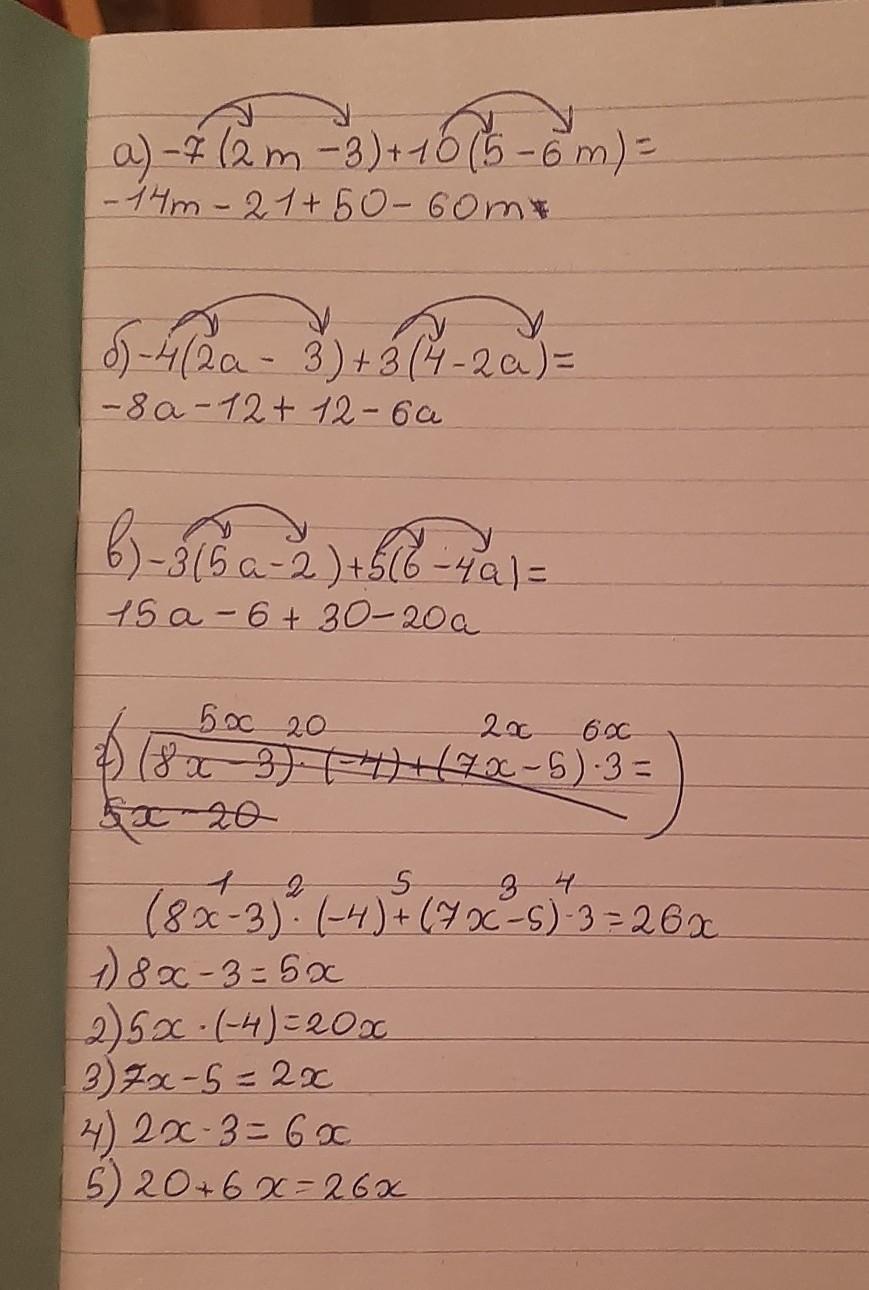 а) -7(2m -3)+10(5-6m)=
-14m-21+50-60m
б) -4(2a - 3)+3(4-2a)=
-8a-12+12-6a
в) -3(5a-2)+5(6-4a)=
15a-6+30-20a
5x 20 2x 6x
г) (8x-3)·(-4)+(7x-5)·3=
5x-20
1 2 5 3 4
(8x-3)·(-4)+(7x-5)·3=26x
1) 8x-3=5x
2) 5x·(-4)=20x
3) 7x-5=2x
4) 2x·3=6x
5) 20+6x=26x